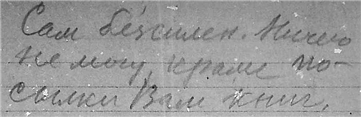 Сам безсилен. Ничего
не могу кроме по-
сылки Вам книг.